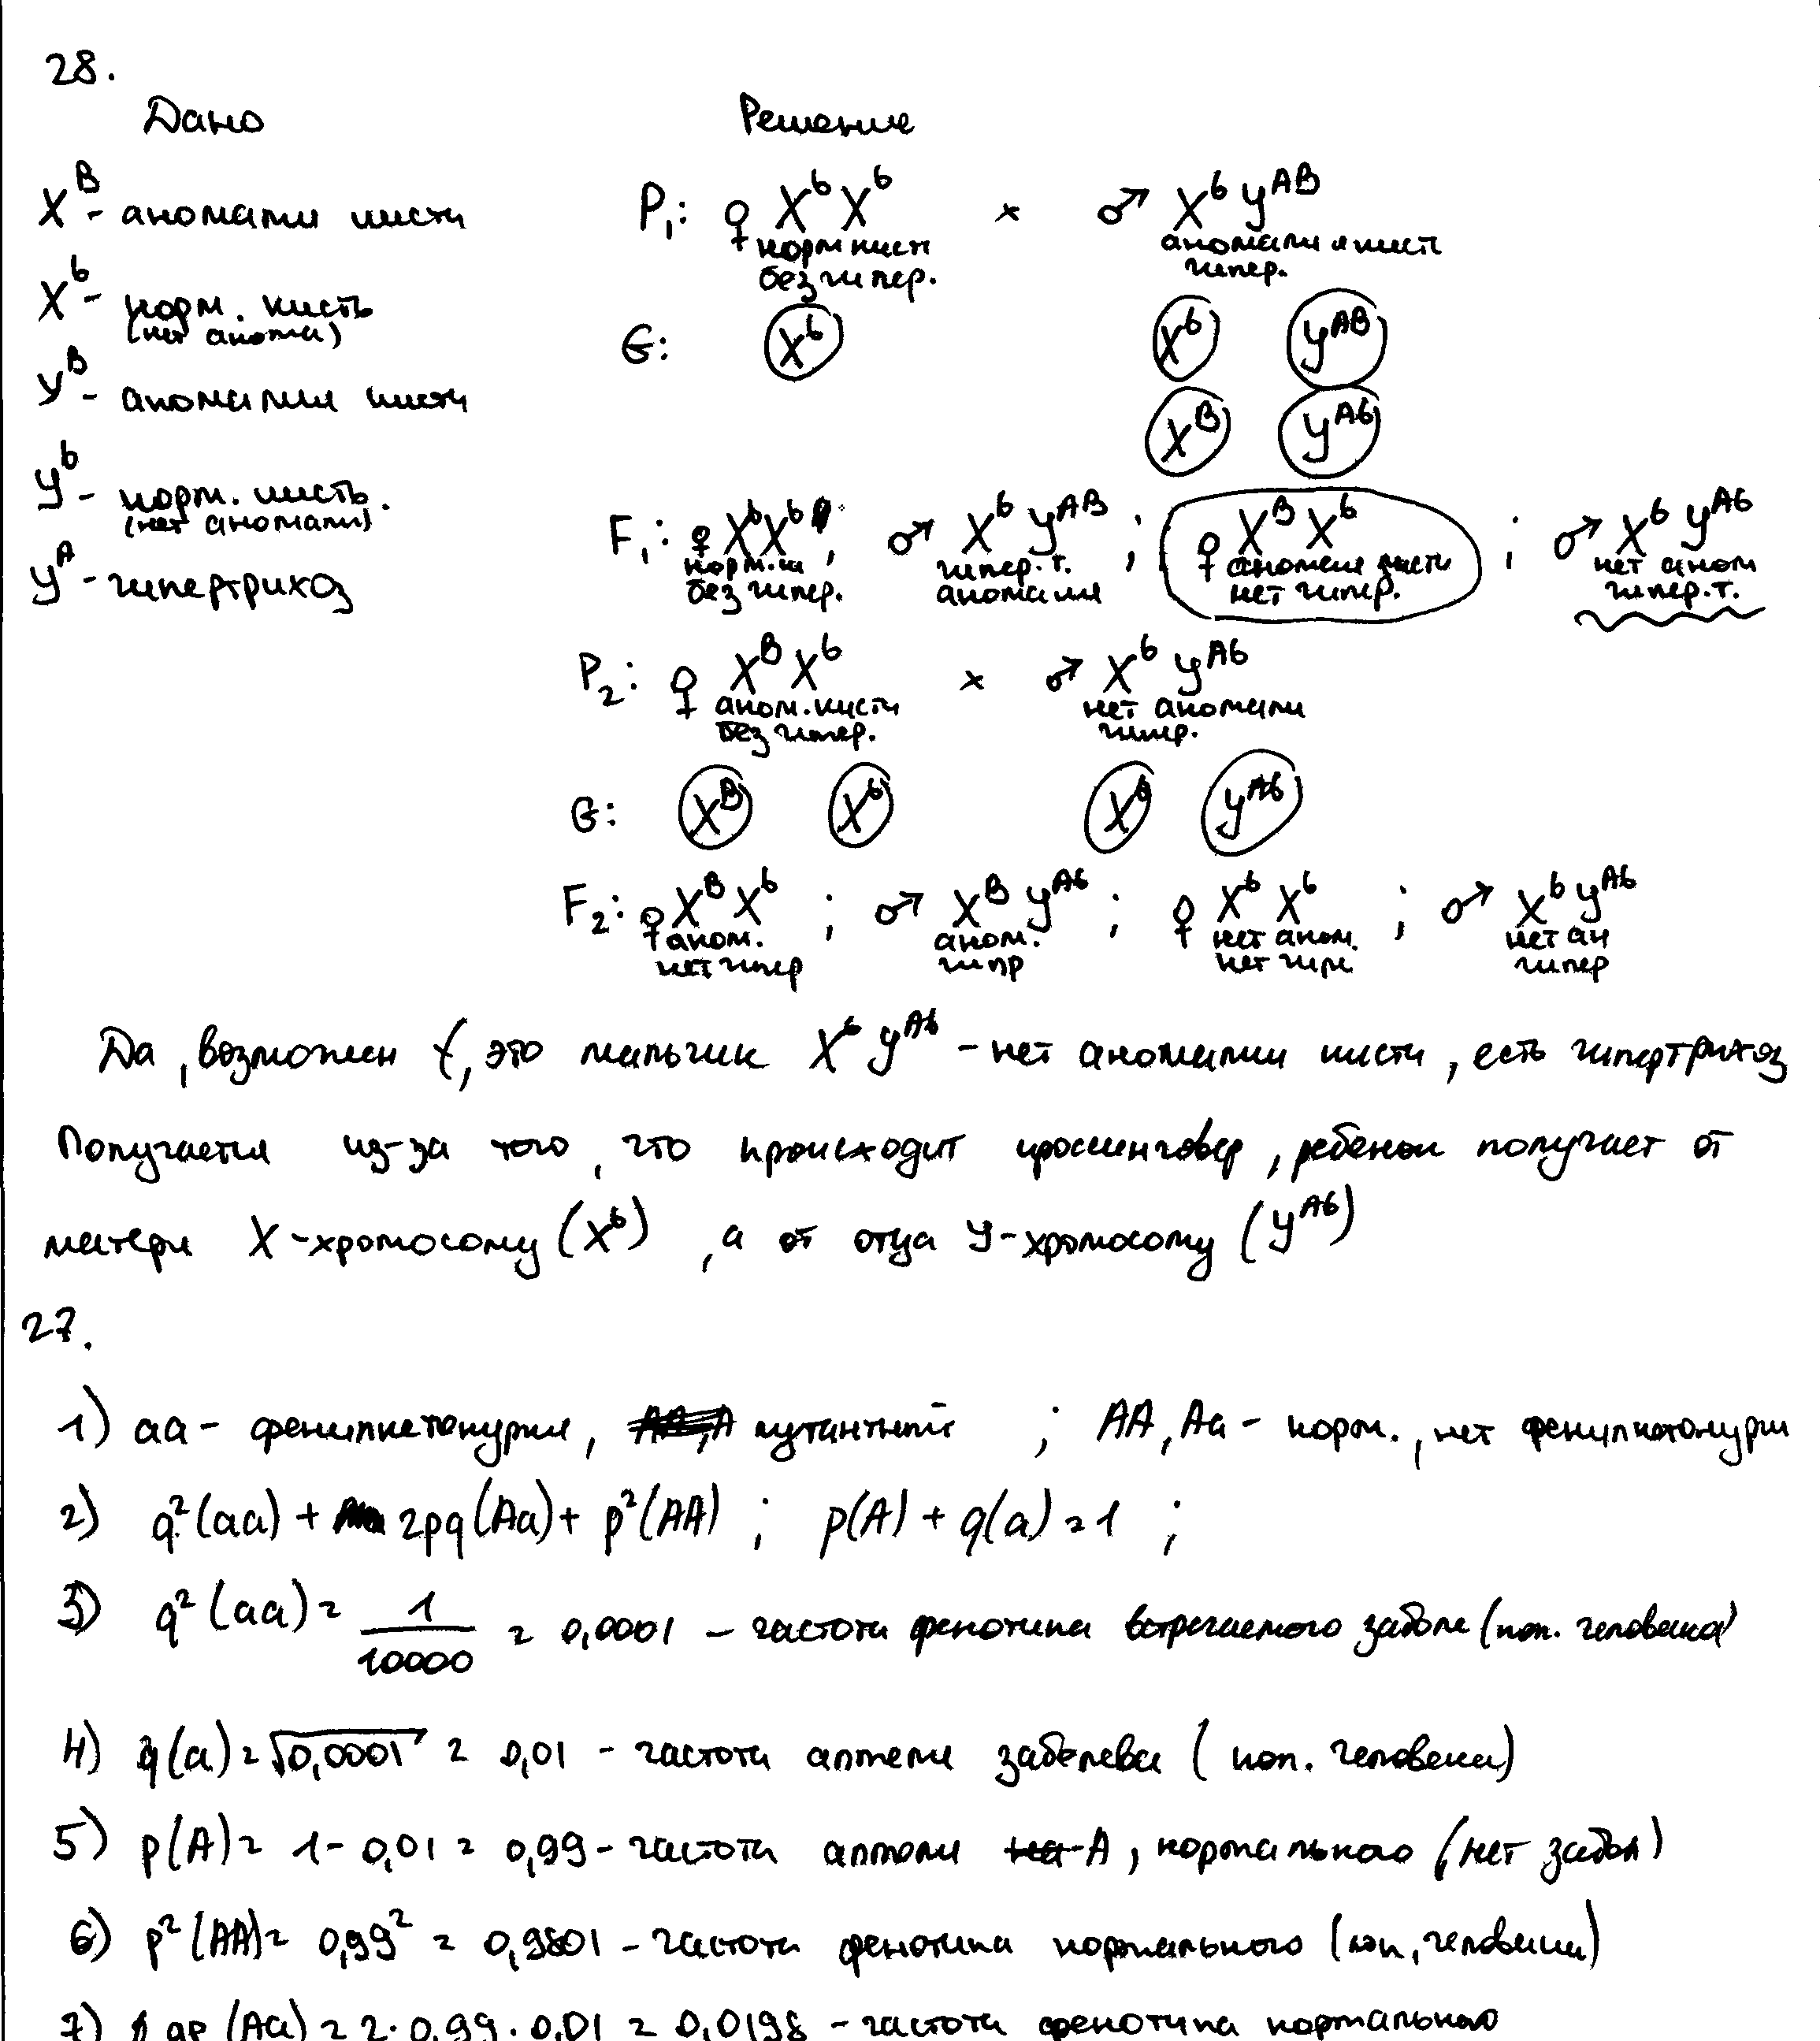 28.
Дано
Решение
X^B - аномалии кисти
X^b - норм. кисть
(нет аномал)
У^B - аномалии кисти
У^b - норм. кисть.
(нет аномали)
У^A - гипертрихоз
P₁: ♀ X^b X^b × ♂ X^b У^AB
норм кист
без гипер.
аномалия кисти
гипер.
G: X^b X^b У^AB
X^B У^Ab
F₁: ♀ X^b X^b ; ♂ X^b У^AB ; ♀ X^B X^b ; ♂ X^b У^Ab
норм. ки гипер.т. аномалия кисти нет аном
без гипер. аномалия нет гипер. гипер.т.
P₂: ♀ X^B X^b × ♂ X^b У^Ab
аном. кисти нет аномали
без гипер. гипер.
G: X^B X^b X^b У^Ab
F₂: ♀ X^B X^b ; ♂ X^B У^Ab ; ♀ X^b X^b ; ♂ X^b У^Ab
аном. аном. нет аном. нет ан
нет гипер гипр нет гипе гипер
Да, возможен, это мальчик X^b У^Ab - нет аномалии кисти, есть гипертрихоз
Получается из-за того, что происходит кроссинговер, ребенок получает от
матери X-хромосому (X^b), а от отца У-хромосому (У^Ab)
27.
1) aa - фенилкетонурия, мутантный ; AA, Aa - норм., нет фенилкетонурии
2) q²(aa) + 2pq(Aa) + p²(AA) ; p(A) + q(a) = 1 ;
3) q²(aa) = 1/10000 = 0,0001 - частота фенотипа встречаемого заболе (поп. человека)
4) q(a) = √0,0001 = 0,01 - частота аллели заболева (поп. человека)
5) p(A) = 1 - 0,01 = 0,99 - частота аллели A, нормального (нет забол)
6) p²(AA) = 0,99² = 0,9801 - частота фенотипа нормального (поп, человека)
7) qp (Aa) = 2·0,99·0,01 = 0,0198 - частота фенотипа нормального